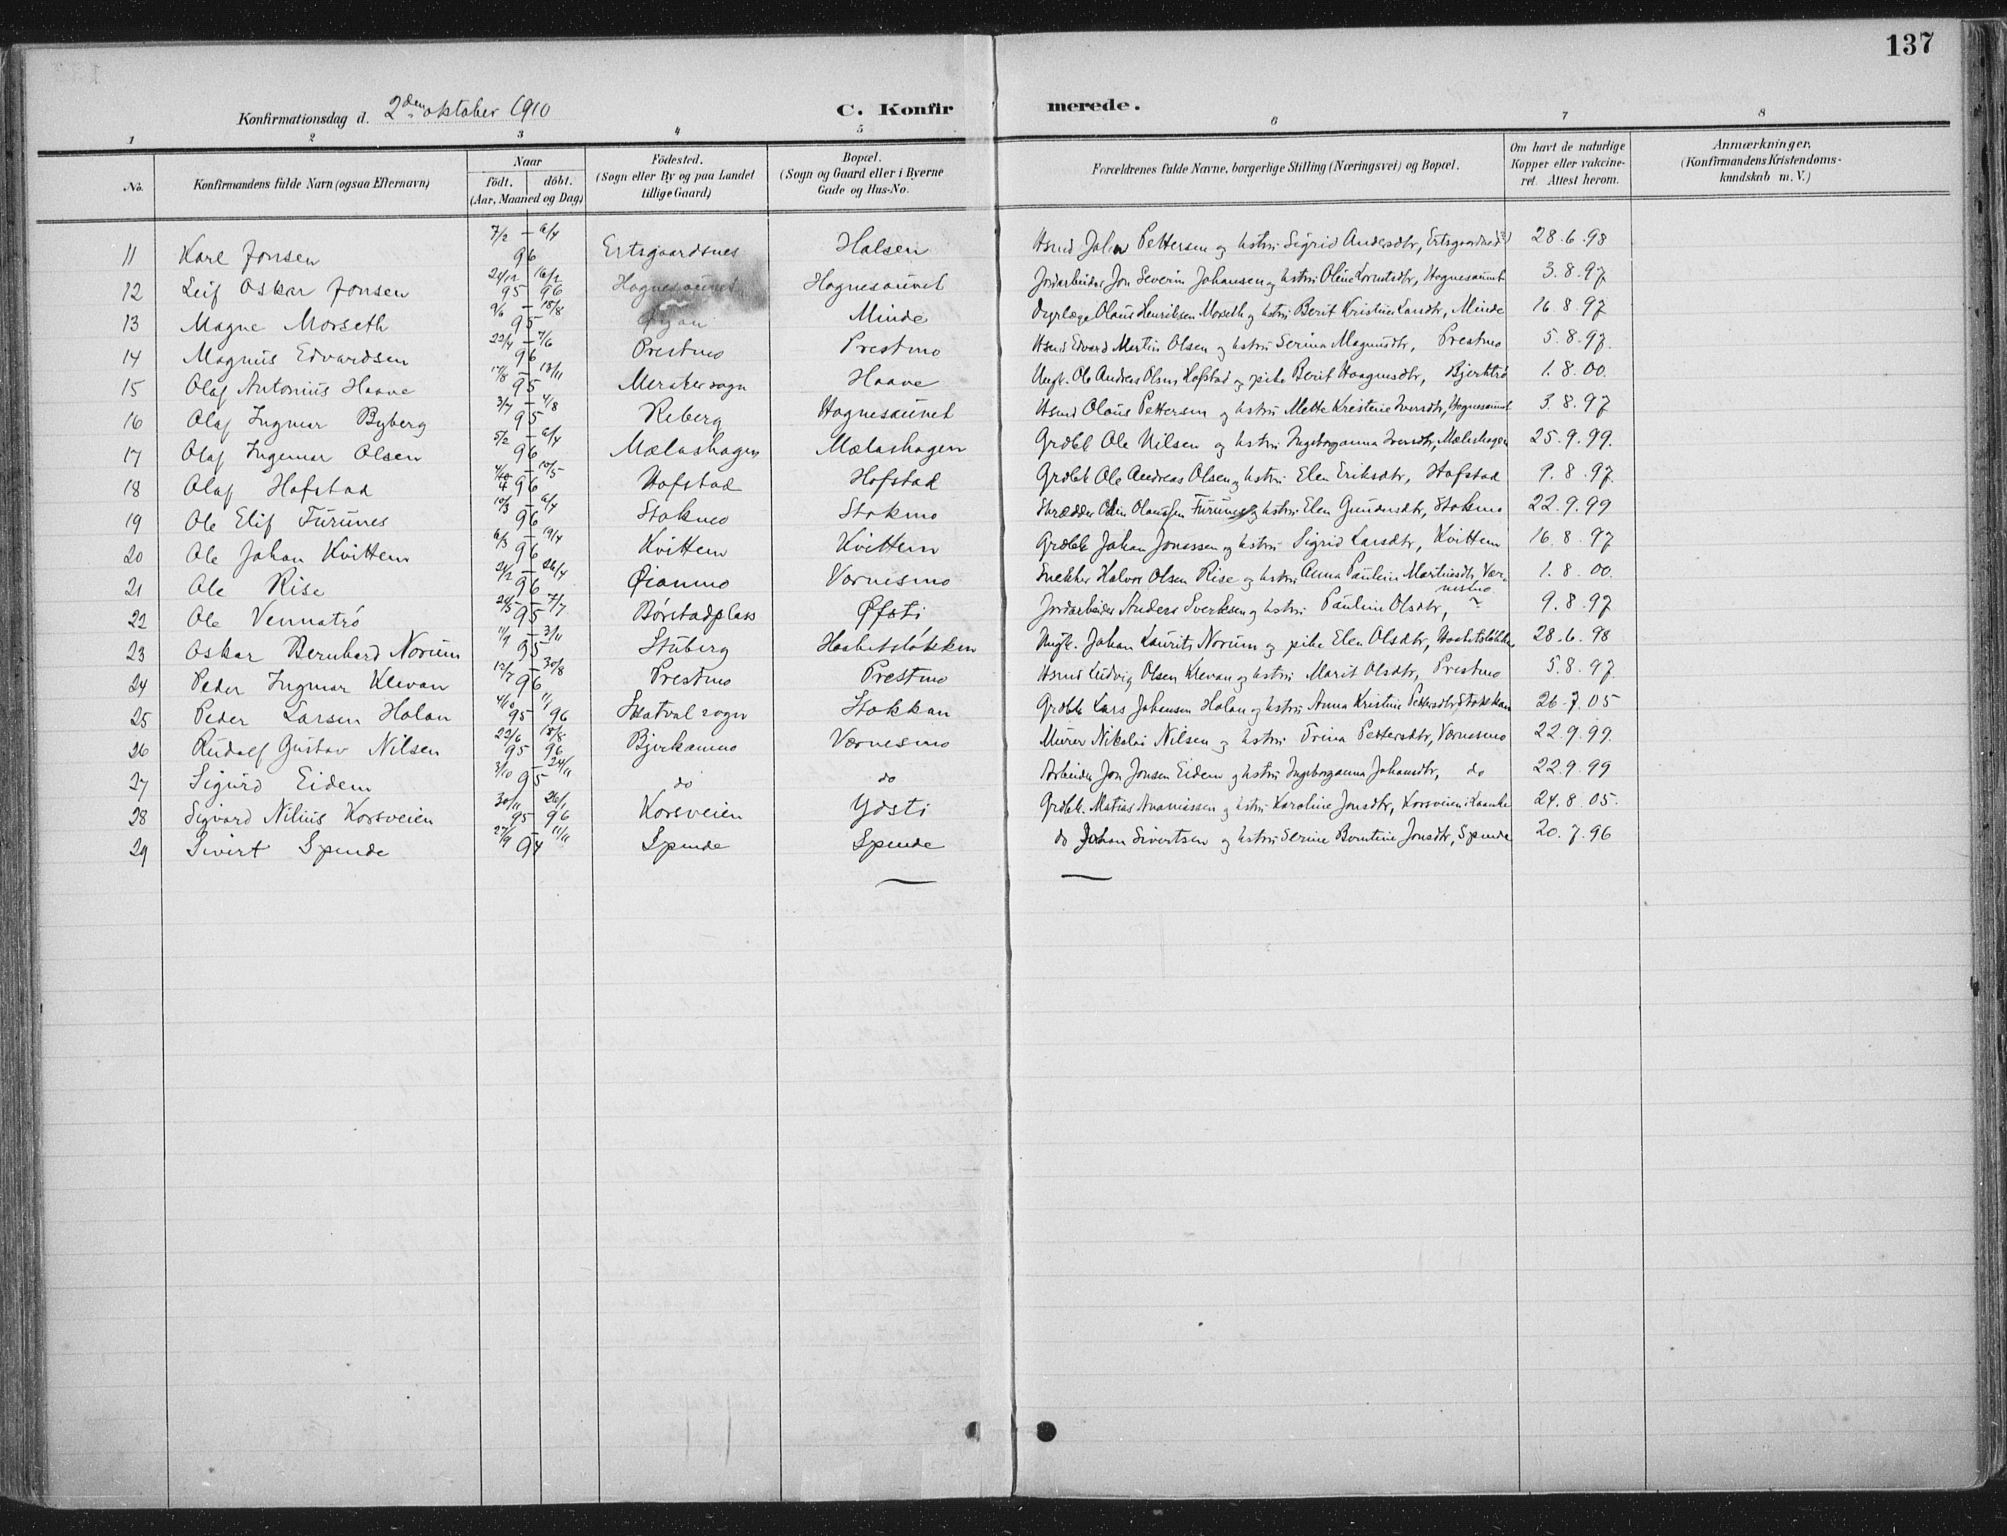 137
Konfirmationsdag d. 2den oktober 1910 C. Konfir merede.
1 2 3 4 5 6 7 8
No. Konfirmandens fulde Navn (ogsaa Efternavn) Naar født. døbt. (Aar, Maaned og Dag) Fødested. (Sogn eller By og paa Landet tillige Gaard) Bopæl. (Sogn og Gaard eller i Byerne Gade og Hus-No. Forældrenes fulde Navne, borgerlige Stilling (Næringsvei) og Bopæl. Om havt de naturlige Kopper eller vakcineret. Attest herom. Anmærkninger, (Konfirmandens Kristendomskundskab m. V.)
11 Karl Jonsen 7/2 – 6/4 96 Ertsgaardsnes Halsen Hsmd Johan Pettersen og hstru Sigrid Andersdtr, 28.6.98
12 Leif Oskar Jonsen 95 96 Hognesaunet Hognesaunet Jordarbeider Jon Severin Johansen og hstru Oline Lorntsdtr, Hognesaunet 3.8.97
13 Magne Morseth 9/6 – 18/8 95 Øyan Minde Dyrlæge Olaus Henriksen Morseth og hstru Berit Kristine Larsdtr, Minde 16.8.97
14 Magnus Edvardsen 22/4 – 7/6 96 Prestmo Prestmo Hsmd Edvard Martin Olsen og hstru Serina Magnusdtr, Prestmo 5.8.97.
15 Olaf Antonius Haave 17/8 – 13/11 95 Meraker sogn Haave Ungk. Ole Andreas Olsen Hofstad og pike Berit Haagensdtr, 1.8.00.
16 Olaf Ingmar Byberg 3/7 – 4/8 95 Reberg Hognesaunet Hsmd Olaus Pettersen og hstru Mette Kristine Iversdtr, Hognesaunet 3.8.97
17 Olaf Ingemar Olsen 5/2 – 6/4 96 Mælashagen Mælashagen Grdbk Ole Nilsen og hstru Ingeborganna Iversdtr, Mælashagen 25.9.99.
18 Olaf Hofstad 96 Hofstad Hofstad Grdbk Ole Andreas Olsen og hstru Elen Eriksdtr, Hofstad 9.8.97.
19 Ole Elif Furunes 10/3 – 6/4 96 Stokmo Stokmo Skrædder Olaussen Furunes og hstru Elen Gundersdtr, Stokmo 22.9.99
20 Ole Johan Kvittem 6/3 – 19/4 96 Kvittem Kvittem Grdbk Johan Jonassen og hstru Sigrid Larsdtr, Kvittem 16.8.97
21 Ole Rise 21/2 – 26/4 96 Øianmo Værnesmo Snekker Halvor Olsen Rise og hstru Anna Pauline Martinsdtr, Vær- 1.8.00.
nesmo
22 Ole Vennatrø 95 – 7/7 Børstadplass Øfsti Jordarbeider Anders Sverksen og hstru Pauline Olsdtr, 9.8.97
23 Oskar Bernhard Norum 11/9 – 3/11 95 Stuberg Haabetsløkken Ungk. Johan Laurits Norum og pike Elen Olsdtr, Haabetsløkken 28.6.98
24 Peder Ingmar Klevan 12/7 – 30/8 96 Prestmo Prestmo Hsmd Ludvig Olsen Klevan og hstru Marit Olsdtr, Prestmo 5.8.97
25 Peder Larsen Holan 4/10 95 1/1 96 Skatval sogn Stokkan Grdbk Lars Johansen Holan og hstru Anna Kristine Pettersdtr, Stokkan 26.7.05
26 Rudolf Gustav Nilsen 22/6 95 18/8 96 Bjerkanmo Værnesmo Murer Nikolai Nilsen og hstru Trina Pettersdtr, Værnesmo 22.9.99.
27 Sigurd Eidem 3/10 – 24/11 95 do do Arbeider Jon Jonsen Eidem og hstru Ingeborganna Johansdtr, do 22.9.99
28 Sigvard Nilius Korsveien 30/11 95 26/1 96 Korsveien Ydsti Grdbk. Matias Ananiassen og hstru Karoline Jonsdtr, Korsveien i 24.8.05.
29 Sivert Spende 27/9 – 11/11 94 Spende Spende do Johan Sivertsen og hstru Serine Berntine Jonsdtr, Spende 20.7.96